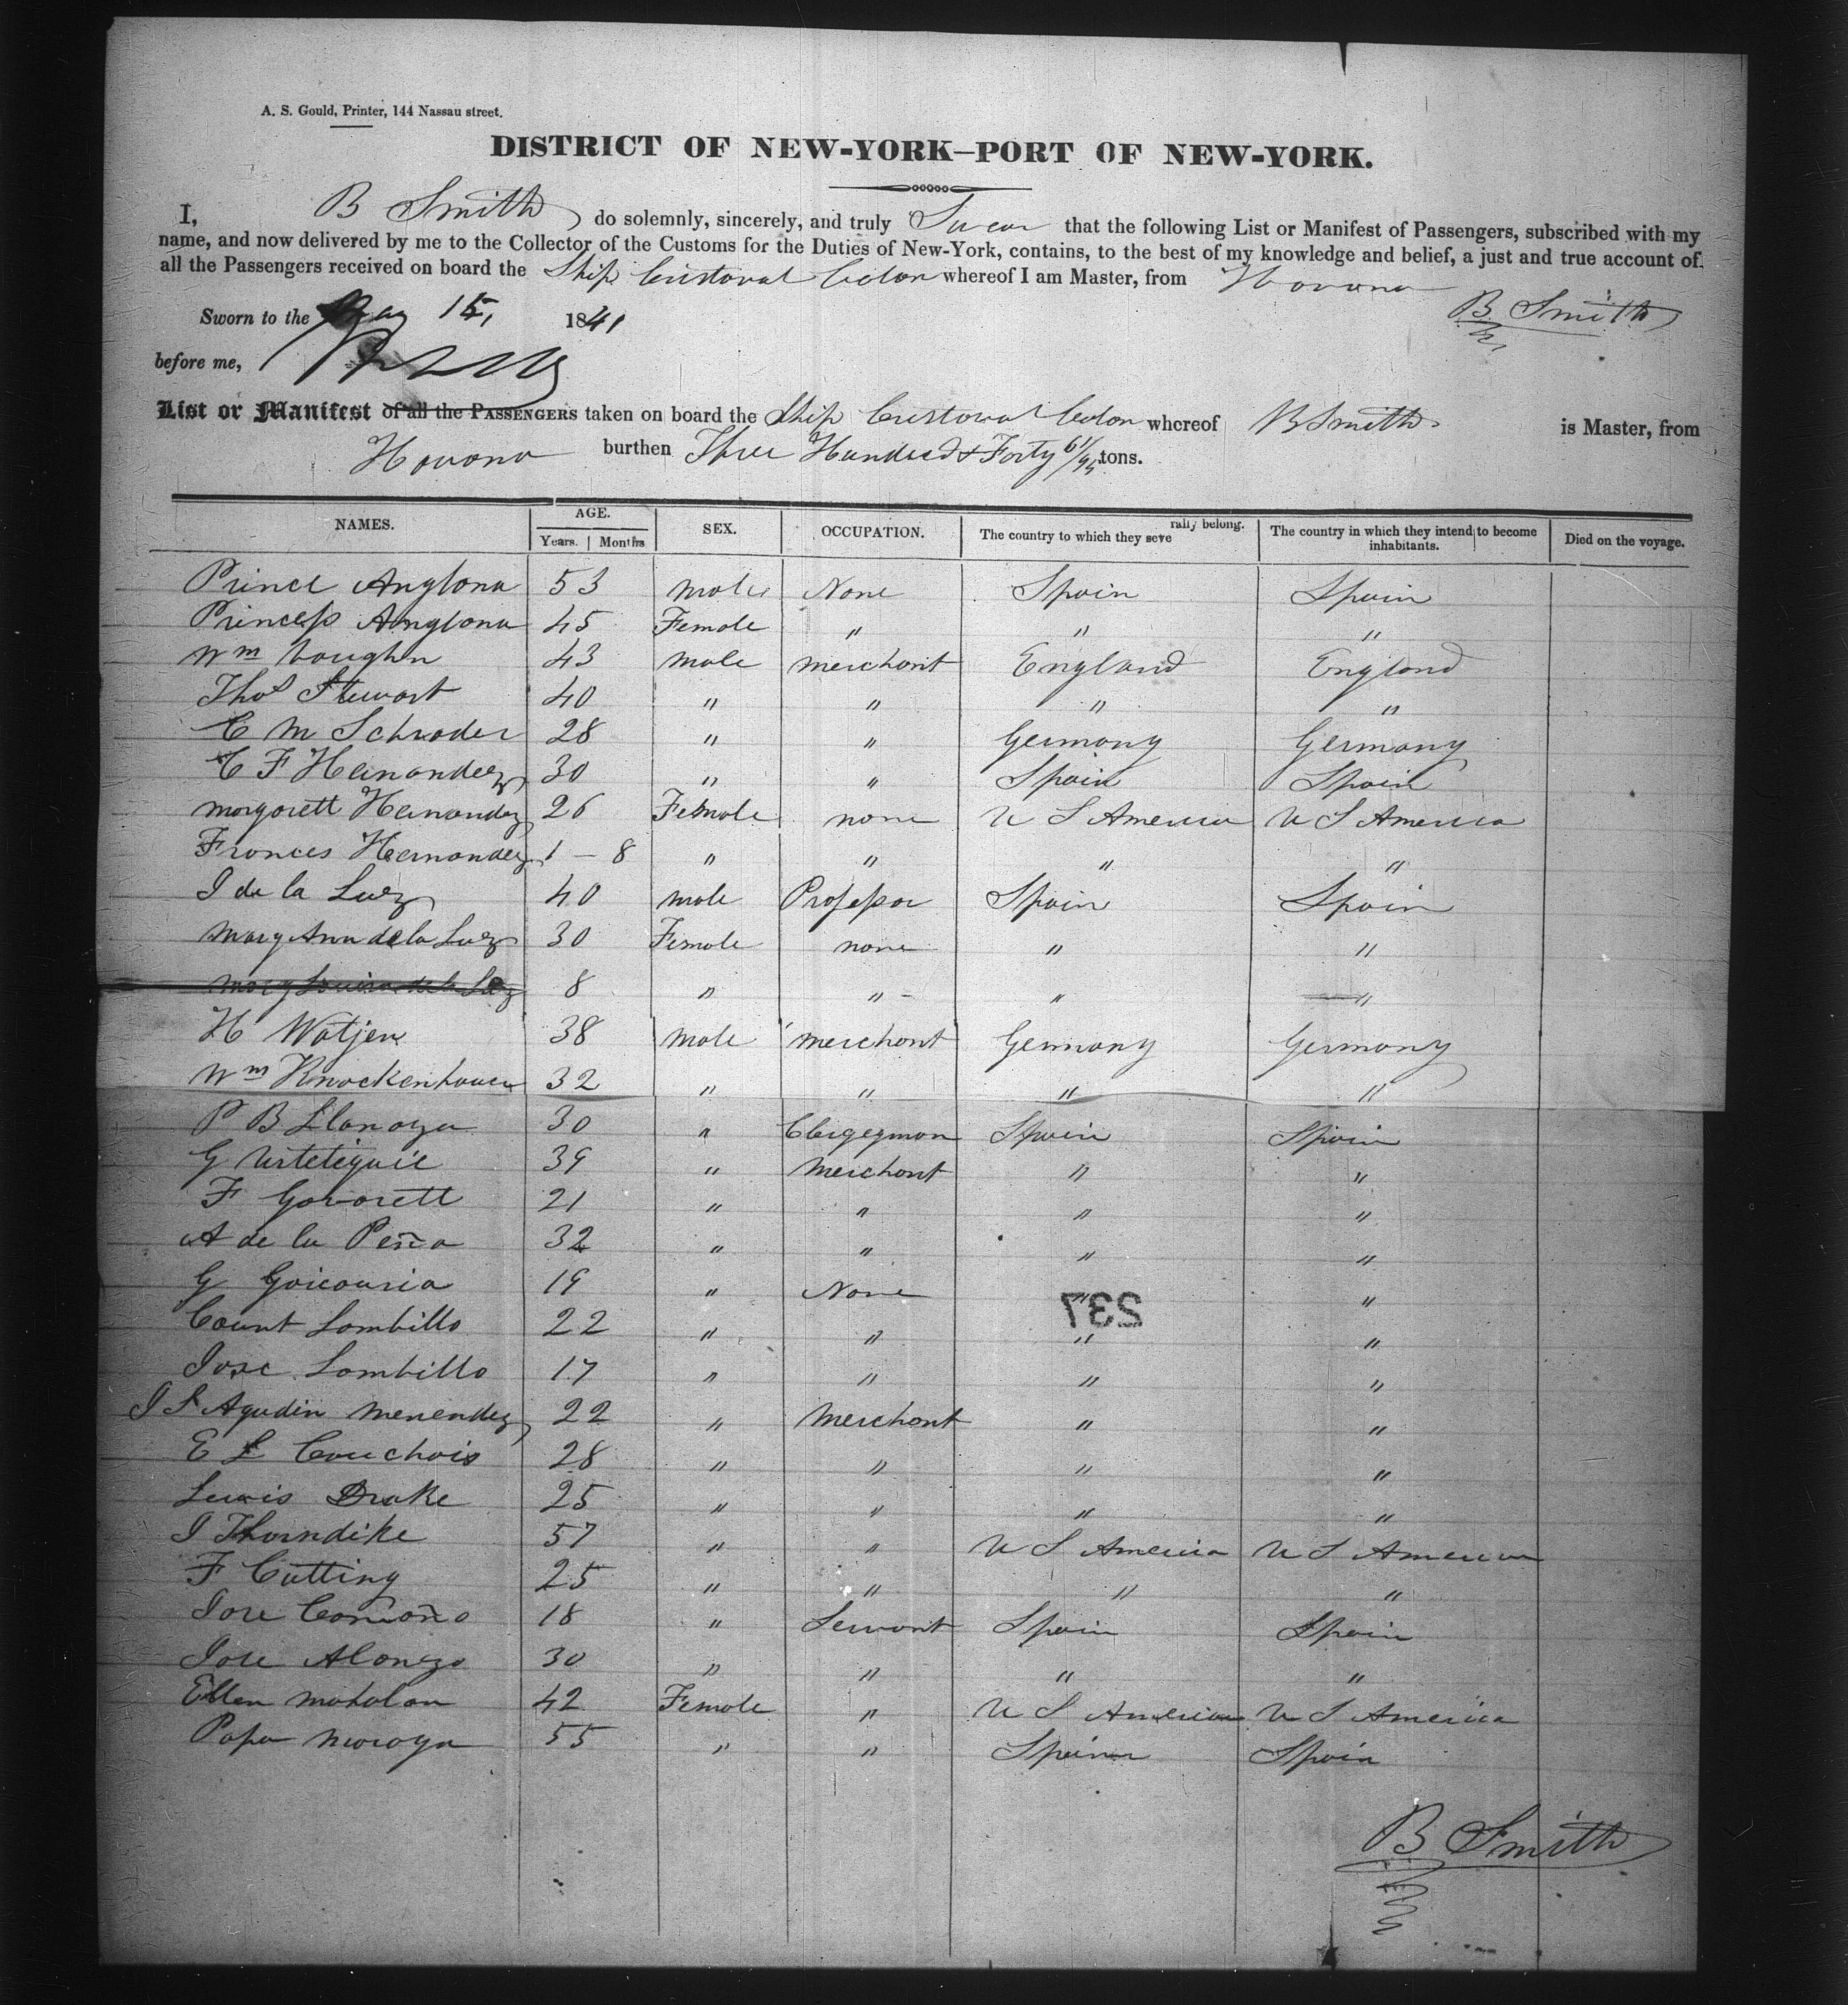 A. S. Gould, Printer, 144 Nassau street.
DISTRICT OF NEW-YORK—PORT OF NEW-YORK.
I, B Smith do solemnly, sincerely, and truly Swear that the following List or Manifest of Passengers, subscribed with my
name, and now delivered by me to the Collector of the Customs for the Duties of New-York, contains, to the best of my knowledge and belief, a just and true account of
all the Passengers received on board the Ship Cristoval Colon whereof I am Master, from Havana
B Smith
Sworn to the May 15, 1841
before me,
List or Manifest of all the PASSENGERS taken on board the Ship Cristoval Colon whereof B Smith is Master, from
Havana burthen Three Hundred & Forty 61/95 tons.
NAMES. AGE. Years. Months SEX. OCCUPATION. The country to which they severally belong. The country in which they intend to become inhabitants. Died on the voyage.
Prince Anglona 53 male None Spain Spain
Princess Anglona 45 Female " " "
Wm Vaughn 43 male merchant England England
Thos Stewart 40 " " " "
C M Schroder 28 " " Germany Germany
C F Hernandez 30 " " Spain Spain
Margarett Hernandez 26 Female none U S America U S America
Frances Hernandez 1 – 8 " " " "
J de la Luz 40 male Professor Spain Spain
Mary Ann de la Luz 30 Female none " "
Mary Louisa de la Luz 8 " " " "
H Watjen 38 male merchant Germany Germany
Wm Knockenhauer 32 " " " "
P B Llanoza 30 " Clergeyman Spain Spain
G Urtetiguie 39 " Merchant " "
F Gavarett 21 " " " "
A de la Peña 32 " " " "
G Goicouria 19 " None " "
237
Count Lombillo 22 " " " "
Jose Lombillo 17 " " " "
J S Agudin Menendez 22 " Merchant " "
E L Couchois 28 " " " "
Lewis Drake 25 " " " "
J Thorndike 57 " " U S America U S America
F Cutting 25 " " " "
Jose 18 " Servant Spain Spain
Jose Alonzo 30 " " " "
Ellen Mahalan 42 Female " U S America U S America
55 " " Spain Spain
B Smith